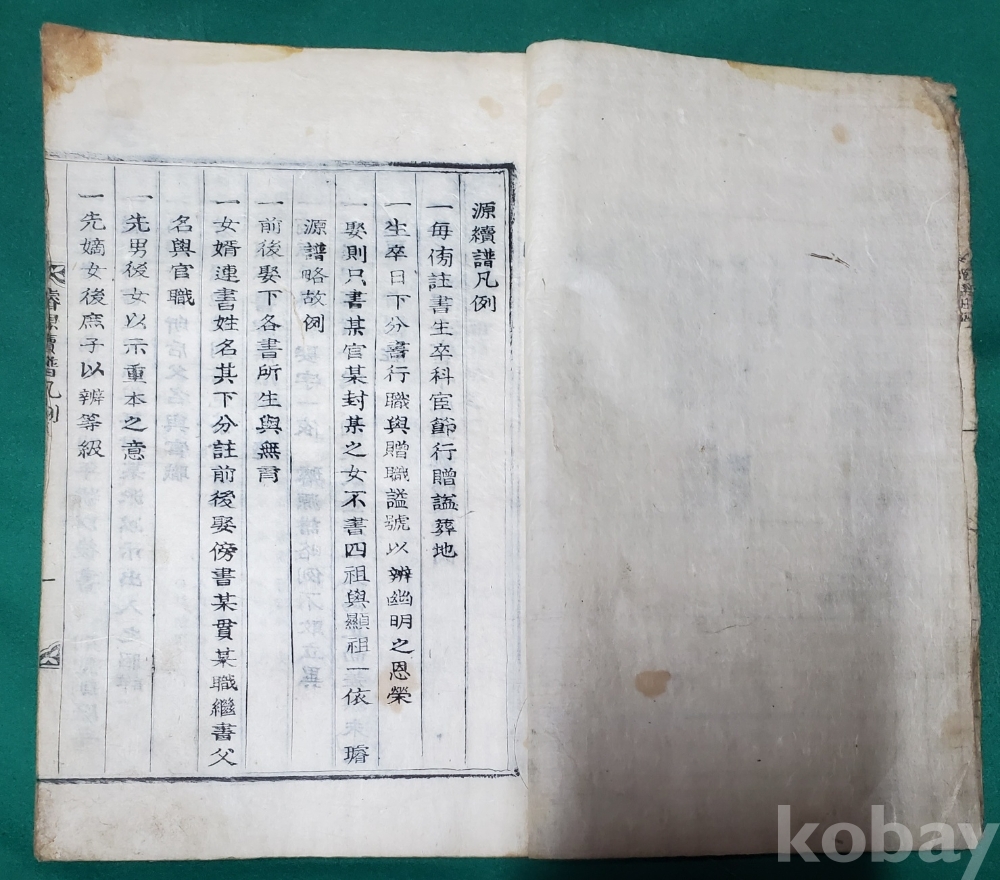 源續譜凡例
一每傍註書生卒科宦節行贈諡葬地
一生卒日下分書行職與贈職諡號以辨幽明之恩榮
一娶則只書某官某封某之女不書四祖與顯祖一依 璿
源譜略故例
一前後娶下各書所生與無育
一女婿連書姓名其下分註前後娶傍書某貫某職繼書父
名與官職
一先男後女以示重本之意
一先嫡女後庶子以辨等級
璿源續譜凡例
一
kobay